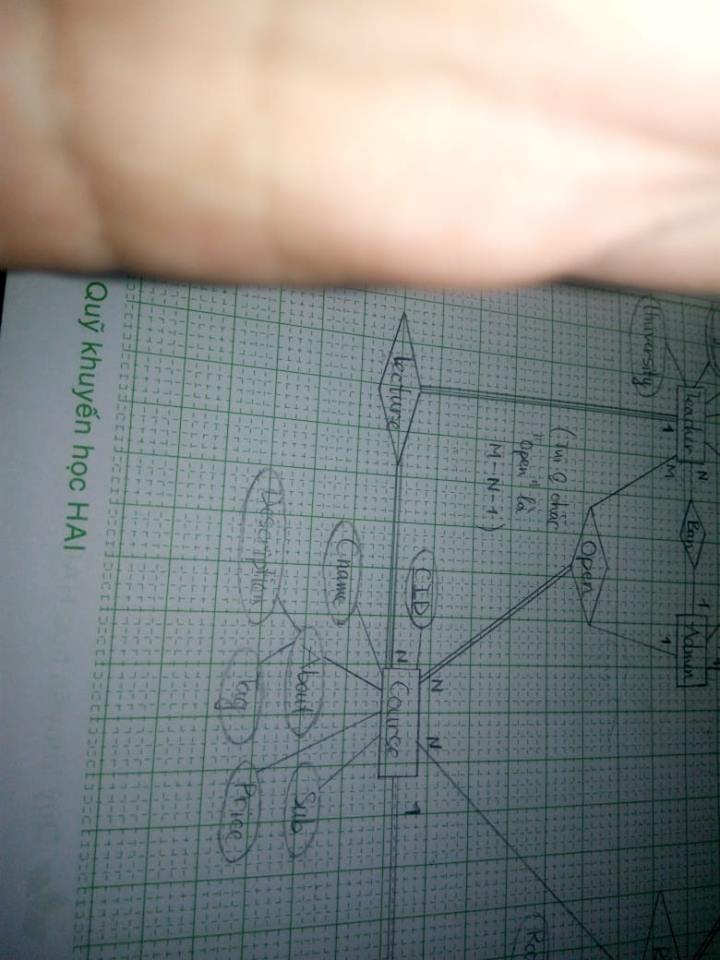 Teacher
N
Ban
1
Admin
1
M
1
University
Open
(Tui 0 chắc
"Open" là
M-N-1)
N
N
CID
lecture
N
Course
1
Cname
About
Sub
Description
Tag
Price
Quỹ khuyến học HAI